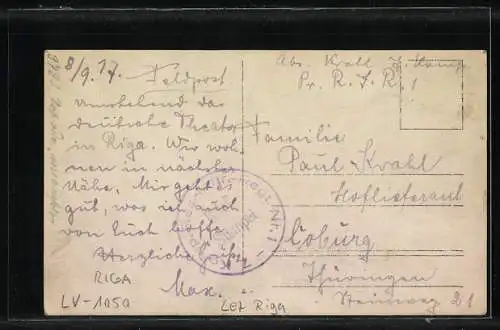 8/9.17.
Feldpost
Umstehend das
deutsche Theater
in Riga. Wir woh-
nen in nächster
Nähe. Mir geht es
gut, was ich auch
von Euch hoffe.
Herzliche Grüße
Max.
RIGA
LV-1050
LET Riga
Abs. Krahl
Pr. R. J. R. 1
Familie
Paul Krahl
Hoflieferant
Coburg
Thüringen
Steinweg 21